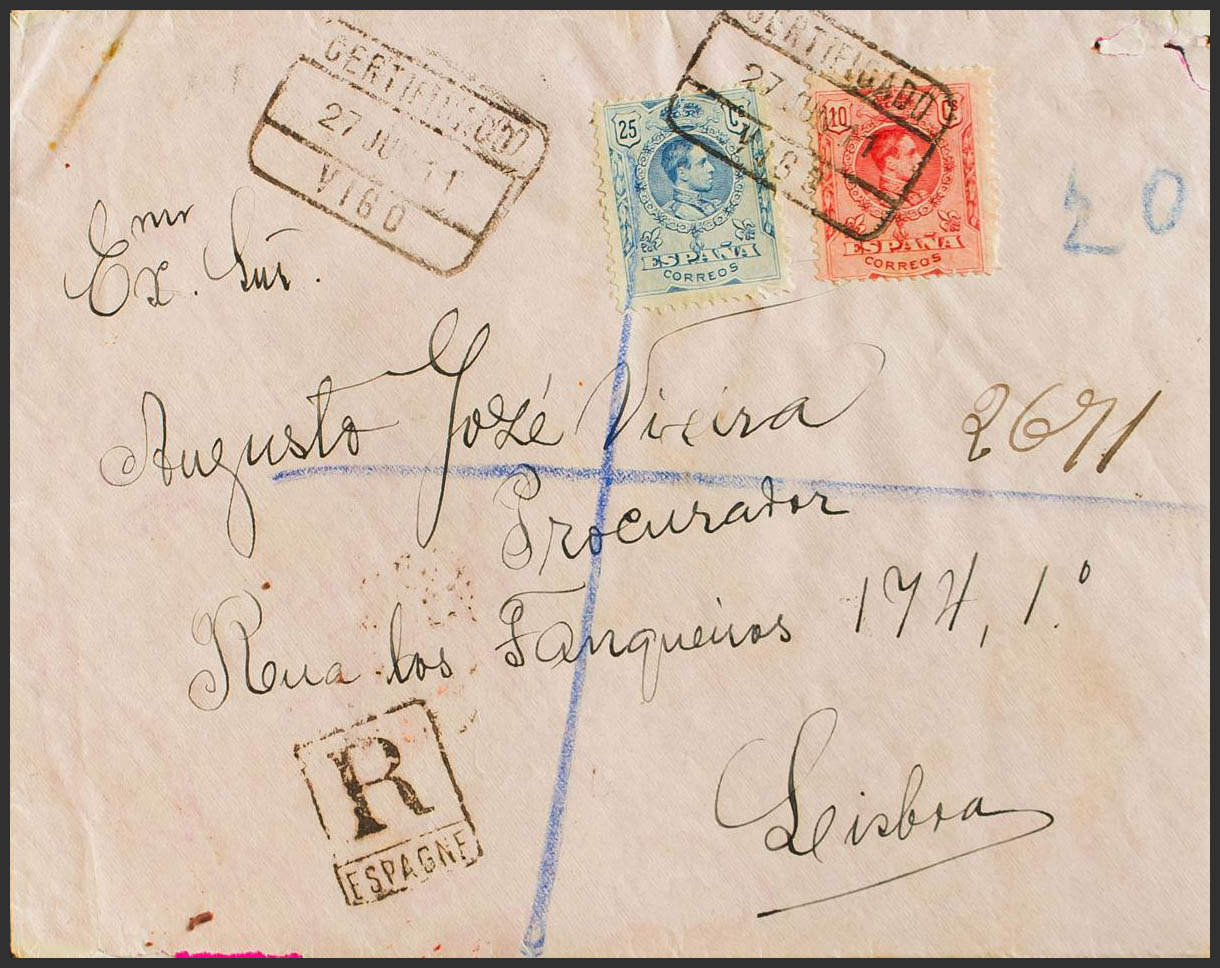 CERTIFICADO
27 JUN 11
VIGO
CERTIFICADO
27 JUN 11
VIGO
25 Cs
ESPAÑA
CORREOS
10 Cs
ESPAÑA
CORREOS
20
Exmo. Snr.
Augusto José Vieira
2671
Procurador
Rua dos Fanqueiros 174, 1.º
Lisboa
R
ESPAGNE